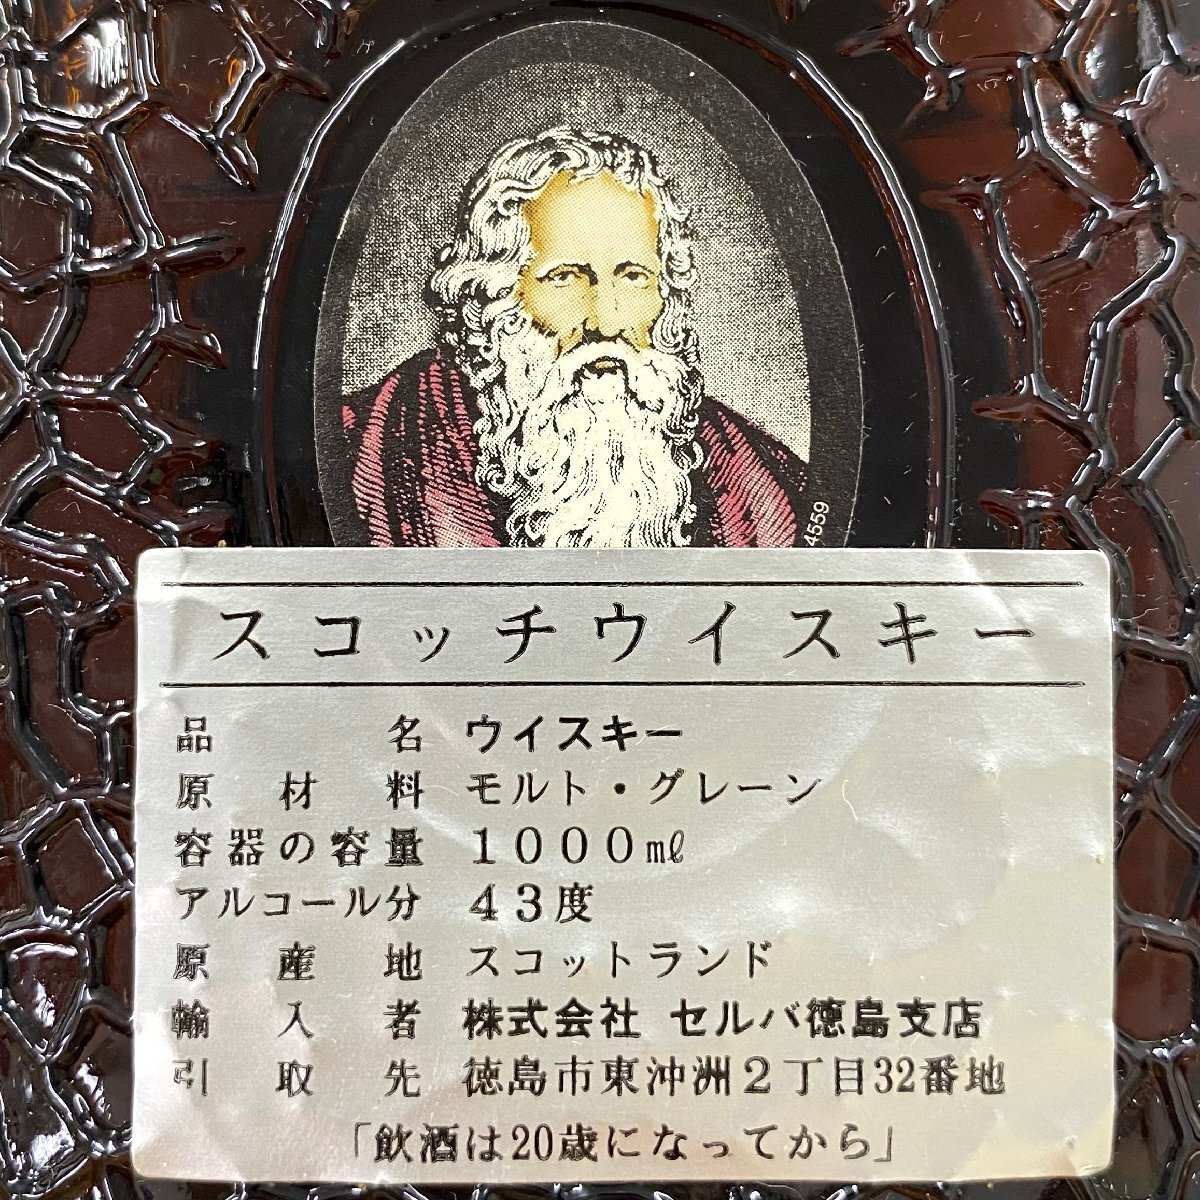 4559
スコッチウイスキー
品名 ウイスキー
原材料 モルト・グレーン
容器の容量 1000㎖
アルコール分 43度
原産地 スコットランド
輸入者 株式会社 セルバ徳島支店
引取先 徳島市東沖洲2丁目32番地
「飲酒は20歳になってから」